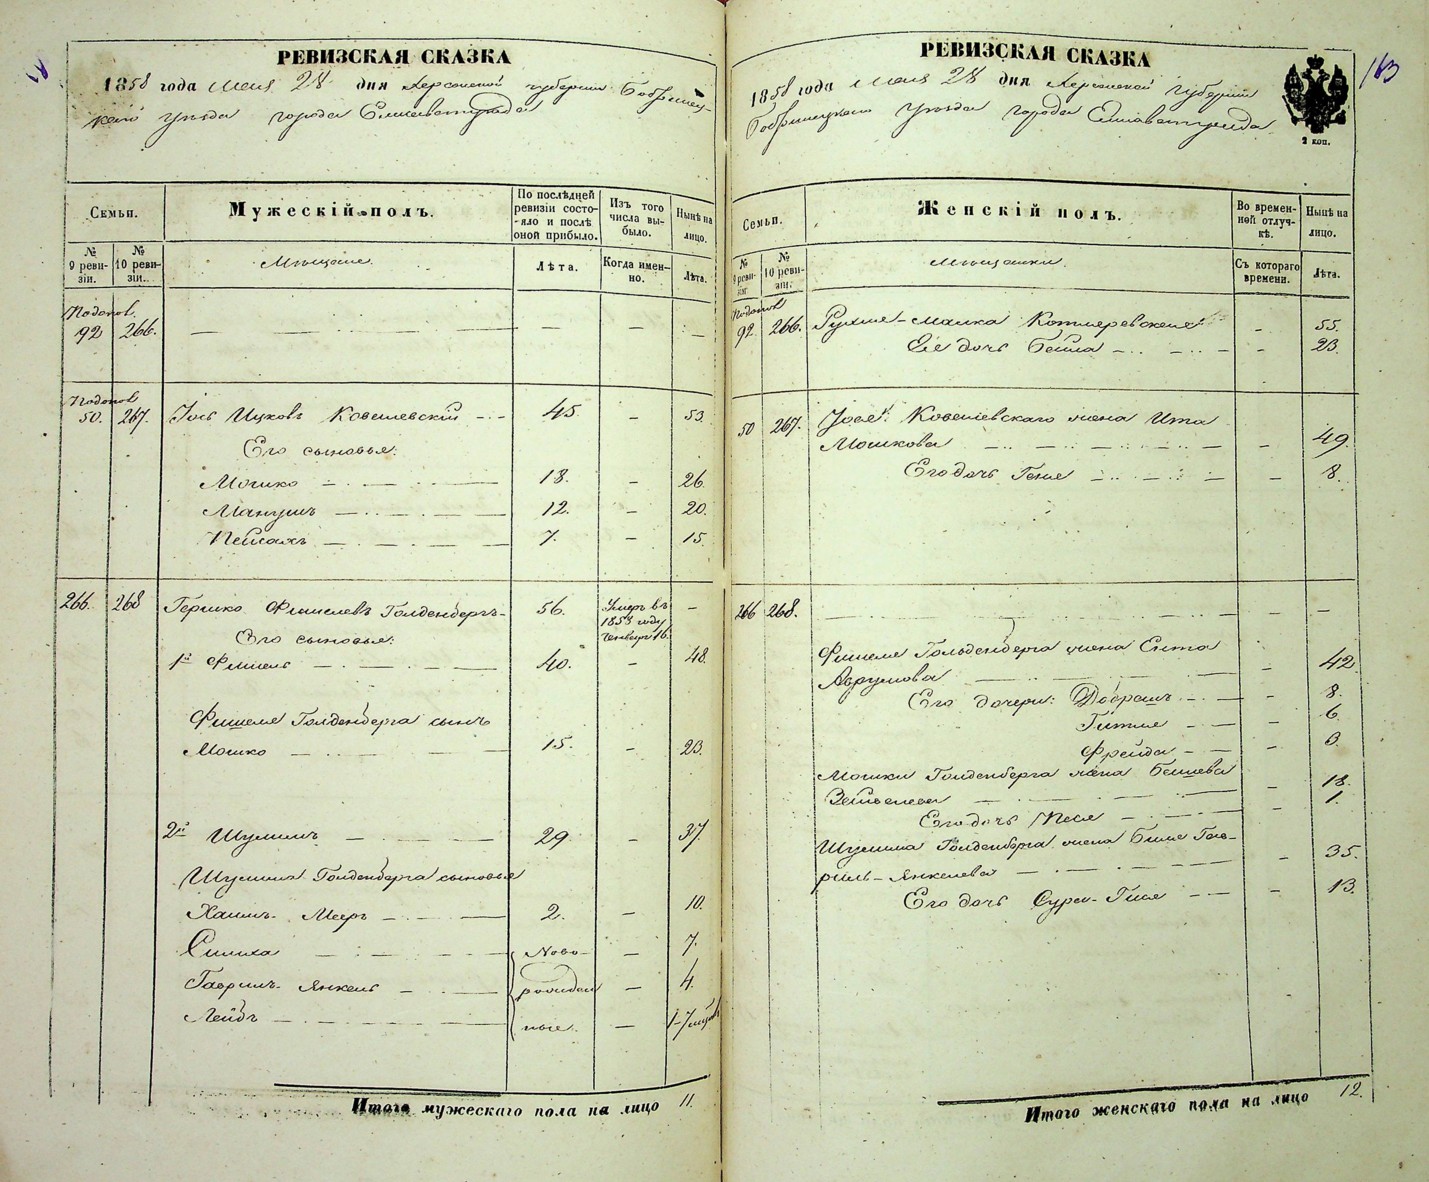 РЕВИЗСКАЯ СКАЗКА
1858 года Мая 28 дня Херсонской губернии Бобринец-
каго Уѣзда города Елисаветграда
Семьи.
Мужескій полъ.
По послѣдней ревизіи состояло и послѣ оной прибыло.
Изъ того числа выбыло.
Нынѣ на лицо.
№ 9 ревизіи.
№ 10 ревизіи.
Мѣщане.
Лѣта.
Когда именно.
Лѣта.
92 266. — — — —
50. 267. Іось Ицковъ Ковешевскій 45 — 53.
Его сыновья:
Мошко 18. — 26.
Манушъ 12. — 20.
Пейсахъ 7. — 15.
266. 268 Гершко Фишелевъ Голденбергъ 56. Умеръ въ —
1853 году
Его сыновья:
1й Фишель 40. — 48.
Фишеля Голденберга сынъ
Мошко 15. — 23.
2й Шулимъ 29 — 37
Шулима Голденберга сыновья
Хаимъ-Мееръ 2. — 10.
Симха Ново- — 7.
Гаврилъ-Янкель рожден — 4.
Лейбъ ные. —
Итого мужескаго пола на лицо 11.
183
РЕВИЗСКАЯ СКАЗКА
1858 года Мая 28 дня Херсонской Губерніи
Бобринецкаго Уѣзда города Елисаветграда
2 коп.
Семьи.
Женскій полъ.
Во временной отлучкѣ.
Нынѣ на лицо.
№ 9 ревизіи.
№ 10 ревизіи.
Мѣщанки.
Съ котораго времени.
Лѣта.
92. 266. Малка — 55.
Ее дочь Бейла — 23.
50 267. Іося Ковешевскаго жена Ита
Мошкова — 49.
Его дочь Геня — 8.
266 268. — — —
Фишеля Гольденберга жена Ента
Аврумова — 42
Его дочери: Добрашъ — 8.
Гитля — 6.
Фрейда — 3.
Мошки Голденберга жена Башева
— 18.
Его дочь Песя 1.
Шулима Голденберга жена Бима Гав-
риль-Янкелева — 35.
Его дочь Сура-Гися — 13.
Итого женскаго пола на лицо 12.